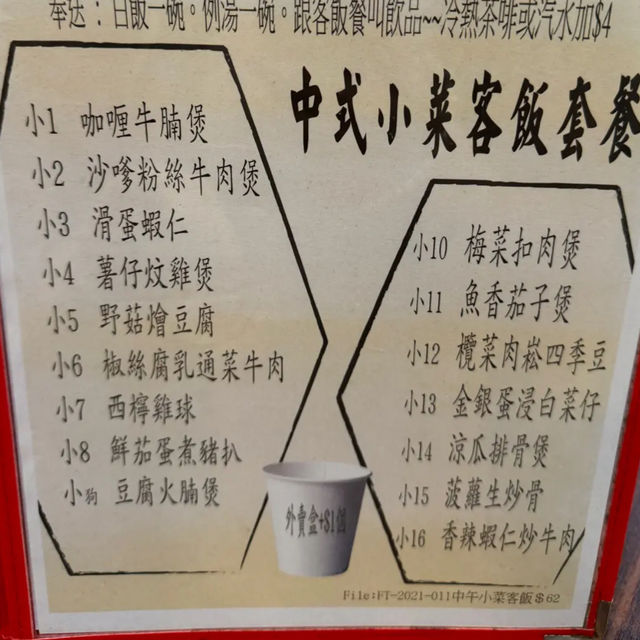 奉送：白飯一碗。例湯一碗。跟客飯餐叫飲品~~冷熱茶啡或汽水加$4
中式小菜客飯套餐
小1 咖喱牛腩煲
小2 沙嗲粉絲牛肉煲
小3 滑蛋蝦仁
小4 薯仔炆雞煲
小5 野菇燴豆腐
小6 椒絲腐乳通菜牛肉
小7 西檸雞球
小8 鮮茄蛋煮豬扒
小狗 豆腐火腩煲
小10 梅菜扣肉煲
小11 魚香茄子煲
小12 欖菜肉崧四季豆
小13 金銀蛋浸白菜仔
小14 涼瓜排骨煲
小15 菠蘿生炒骨
小16 香辣蝦仁炒牛肉
外賣盒+$1個
File:FT-2021-011中午小菜客飯$62